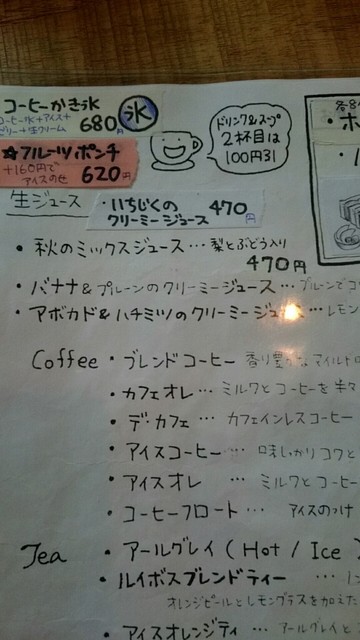 コーヒーかき氷
コーヒー氷+アイス+
ゼリー+生クリーム 680円
氷
★フルーツポンチ
+160円で
アイスのせ 620円
ドリンク&スープ
2杯目は
100円引
生ジュース
・いちじくの
クリーミージュース 470円
・秋のミックスジュース…梨とぶどう入り
470円
・バナナ&プルーンのクリーミージュース…プルーンでコ
・アボカド&ハチミツのクリーミージュース…レモン
Coffee ・ブレンドコーヒー 香り豊かなマイルド
・カフェオレ … ミルクとコーヒーを半々
・デ・カフェ … カフェインレスコーヒー
・アイスコーヒー… 味しっかりコクと
・アイスオレ … ミルクとコーヒー
・コーヒーフロート … アイスのっけ
Tea ・アールグレイ (Hot / Ice)
・ルイボスブレンドティー …
オレンジピールとレモングラスを加えた
・アイスオレンジティ … アールグレイと